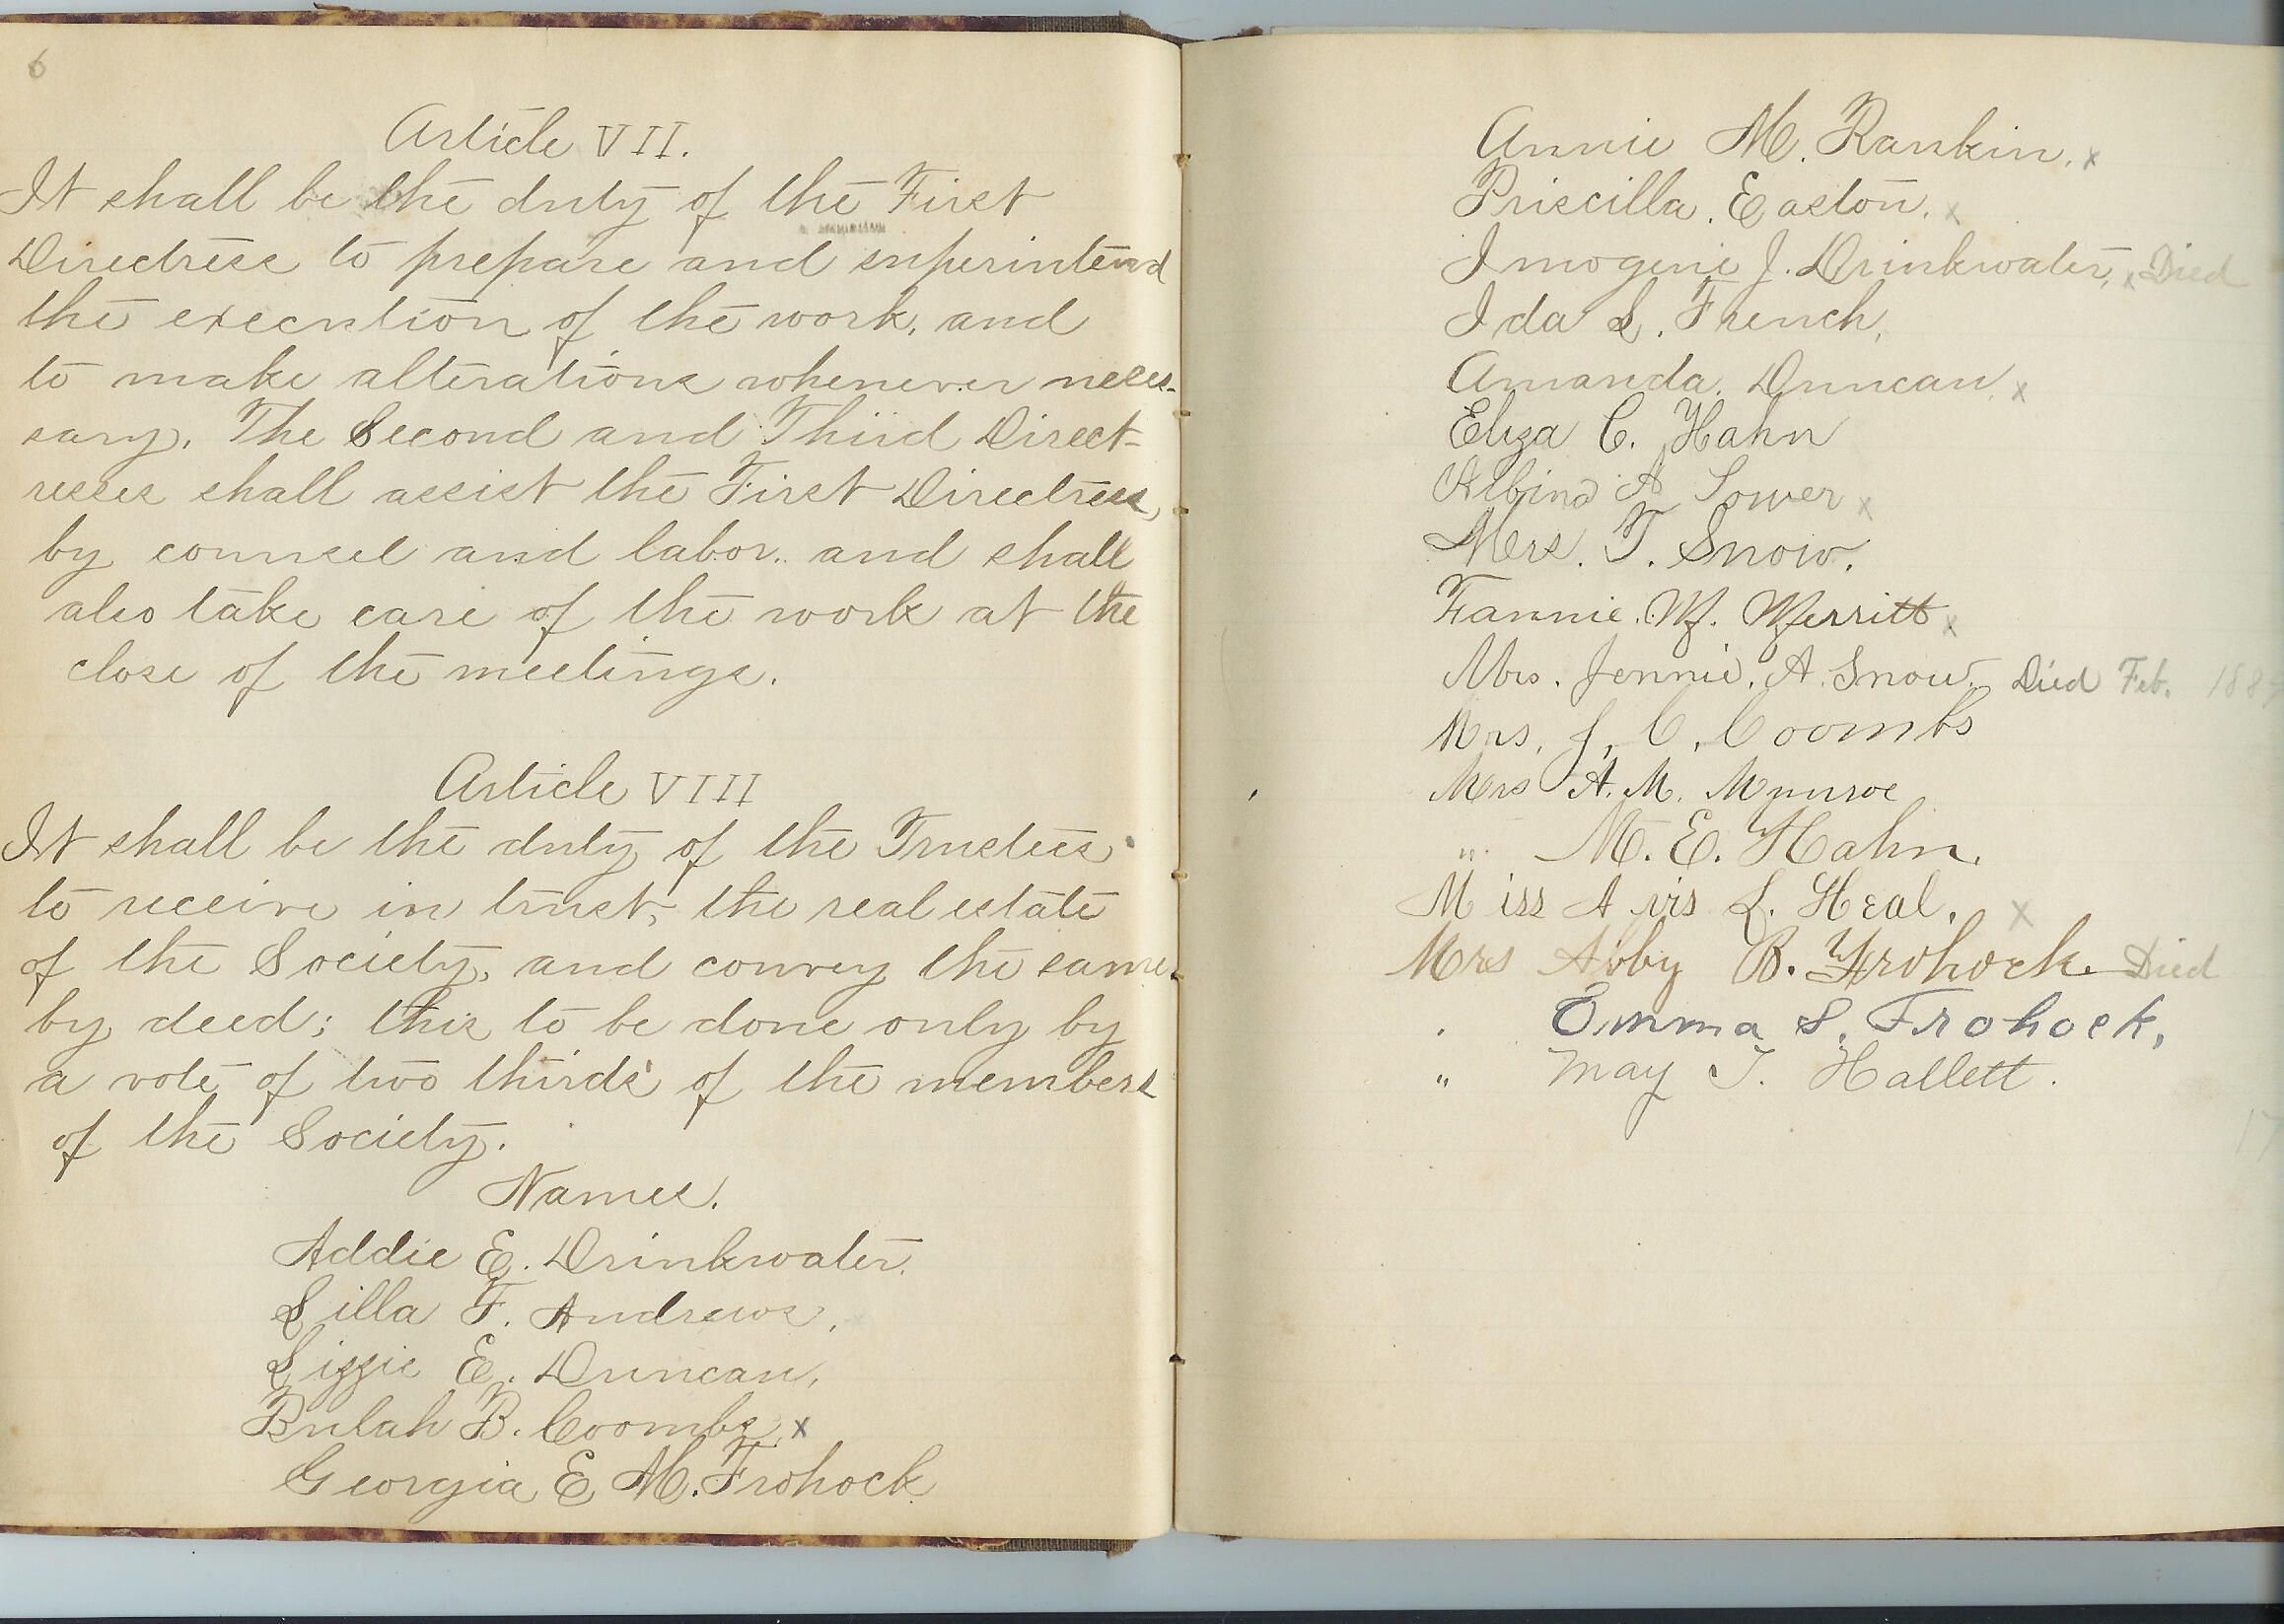 6
Article VII.
It shall be the duty of the First
Directress to prepare and superintend
the execution of the work, and
to make alterations whenever neces-
sary. The Second and Third Direct-
resses shall assist the First Directress,
by counsel and labor. and shall
also take care of the work at the
close of the meetings.
Article VIII
It shall be the duty of the Trustees
to receive in trust, the real estate
of the Society, and convey the same
by deed; this to be done only by
a vote of two thirds of the members
of the Society.
Names.
Addie E. Drinkwater.
Lilla F. Andrews.
Lizzie E. Duncan.
Bulah B. Coombs x
Georgia E M. Frohock
Annie M. Rankin. x
Priscilla. Easton. x
Imogene J. Drinkwater, x Died
Ida L. French,
Amanda. Duncan, x
Eliza C. Hahn
Albina A x
Mrs. T. Snow.
Fannie. W. Merritt x
Mrs. Jennie. A. Snow. Died Feb.
Mrs. J. C. Coombs
Mrs A. M. Munroe
" M. E. Hahn.
Miss Avis L. Heal. x
Mrs Abby B. Frohock. Died
Emma S. Frohock,
" May T. Hallett.
17